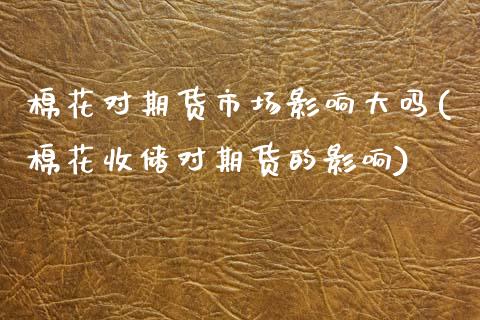 棉花对期货市场影响大吗(
棉花收储对期货的影响)